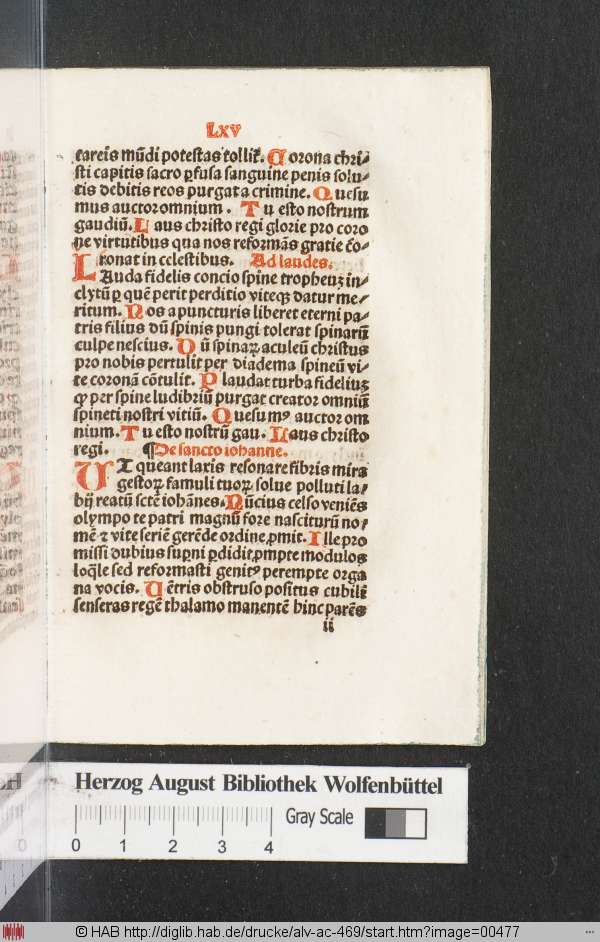 Lxv
tareis mūdi potestas tollit. Corona chri⸗
sti capitis sacro ꝑfusa sanguine penis solu⸗
tis debitis reos purgat a crimine. Quesu
mus auctor omnium. Tu esto nostrum
gaudiū. Laus christo regi glorie pro coro
ne virtutibus qua nos reformās gratie co⸗
ronat in celestibus. Ad laudes.
LAuda fidelis concio spine tropheuꝫ in⸗
clytū ꝑ quē perit perditio viteqꝫ datur me⸗
ritum. Nos a puncturis liberet eterni pa⸗
tris filius dū spinis pungi tolerat spinarū
culpe nescius. Dū spinaꝝ aculeū christus
pro nobis pertulit per diadema spineū vi⸗
te coronā cōtulit. Plaudat turba fideliuꝫ
ꝙ per spine ludibriū purgat creator omniū
spineti nostri vitiū. Quesumꝰ auctor om
nium. Tu esto nostrū gau. Laus christo
regi. ¶De sancto iohanne.
UT queant laxis resonare fibris mira
gestoꝝ famuli tuoꝝ solue polluti la⸗
bij reatū sctē iohānes. Nūcius celso veniēs
olympo te patri magnū fore nasciturū no⸗
mē ⁊ vite seriē gerēde ordine ꝓmit. Ille pro
missi dubius suꝑni ꝑdidit ꝓmpte modulos
loq̄le sed reformasti genitꝰ perempte orga
na vocis. Uētris obstruso positus cubili
senseras regē thalamo manentē hinc parēs
ii
Herzog August Bibliothek Wolfenbüttel
Gray Scale
0 1 2 3 4
© HAB http://diglib.hab.de/drucke/alv-ac-469/start.htm?image=00477